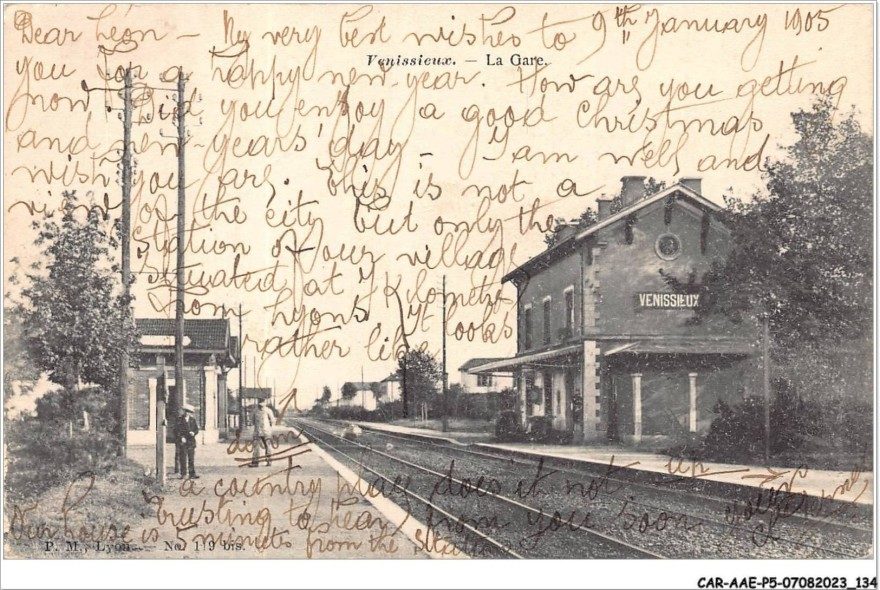 Dear Léon – My very best wishes to 9th January 1905
Venissieux. — La Gare.
you for a happy new-year. How are you getting
now? Did you enjoy a good Christmas
and new-years' day – I am well and
wish you are. This is not a
view of the city but only the
station of our village
situated at 7 Kilometre
from Lyons. It looks
rather like
VENISSIEUX
a country place does it not
trusting to hear from you soon
Our house is 5 minuts from the station
P. M., Lyon. — No. 119 bis.
CAR-AAE-P5-07082023_134